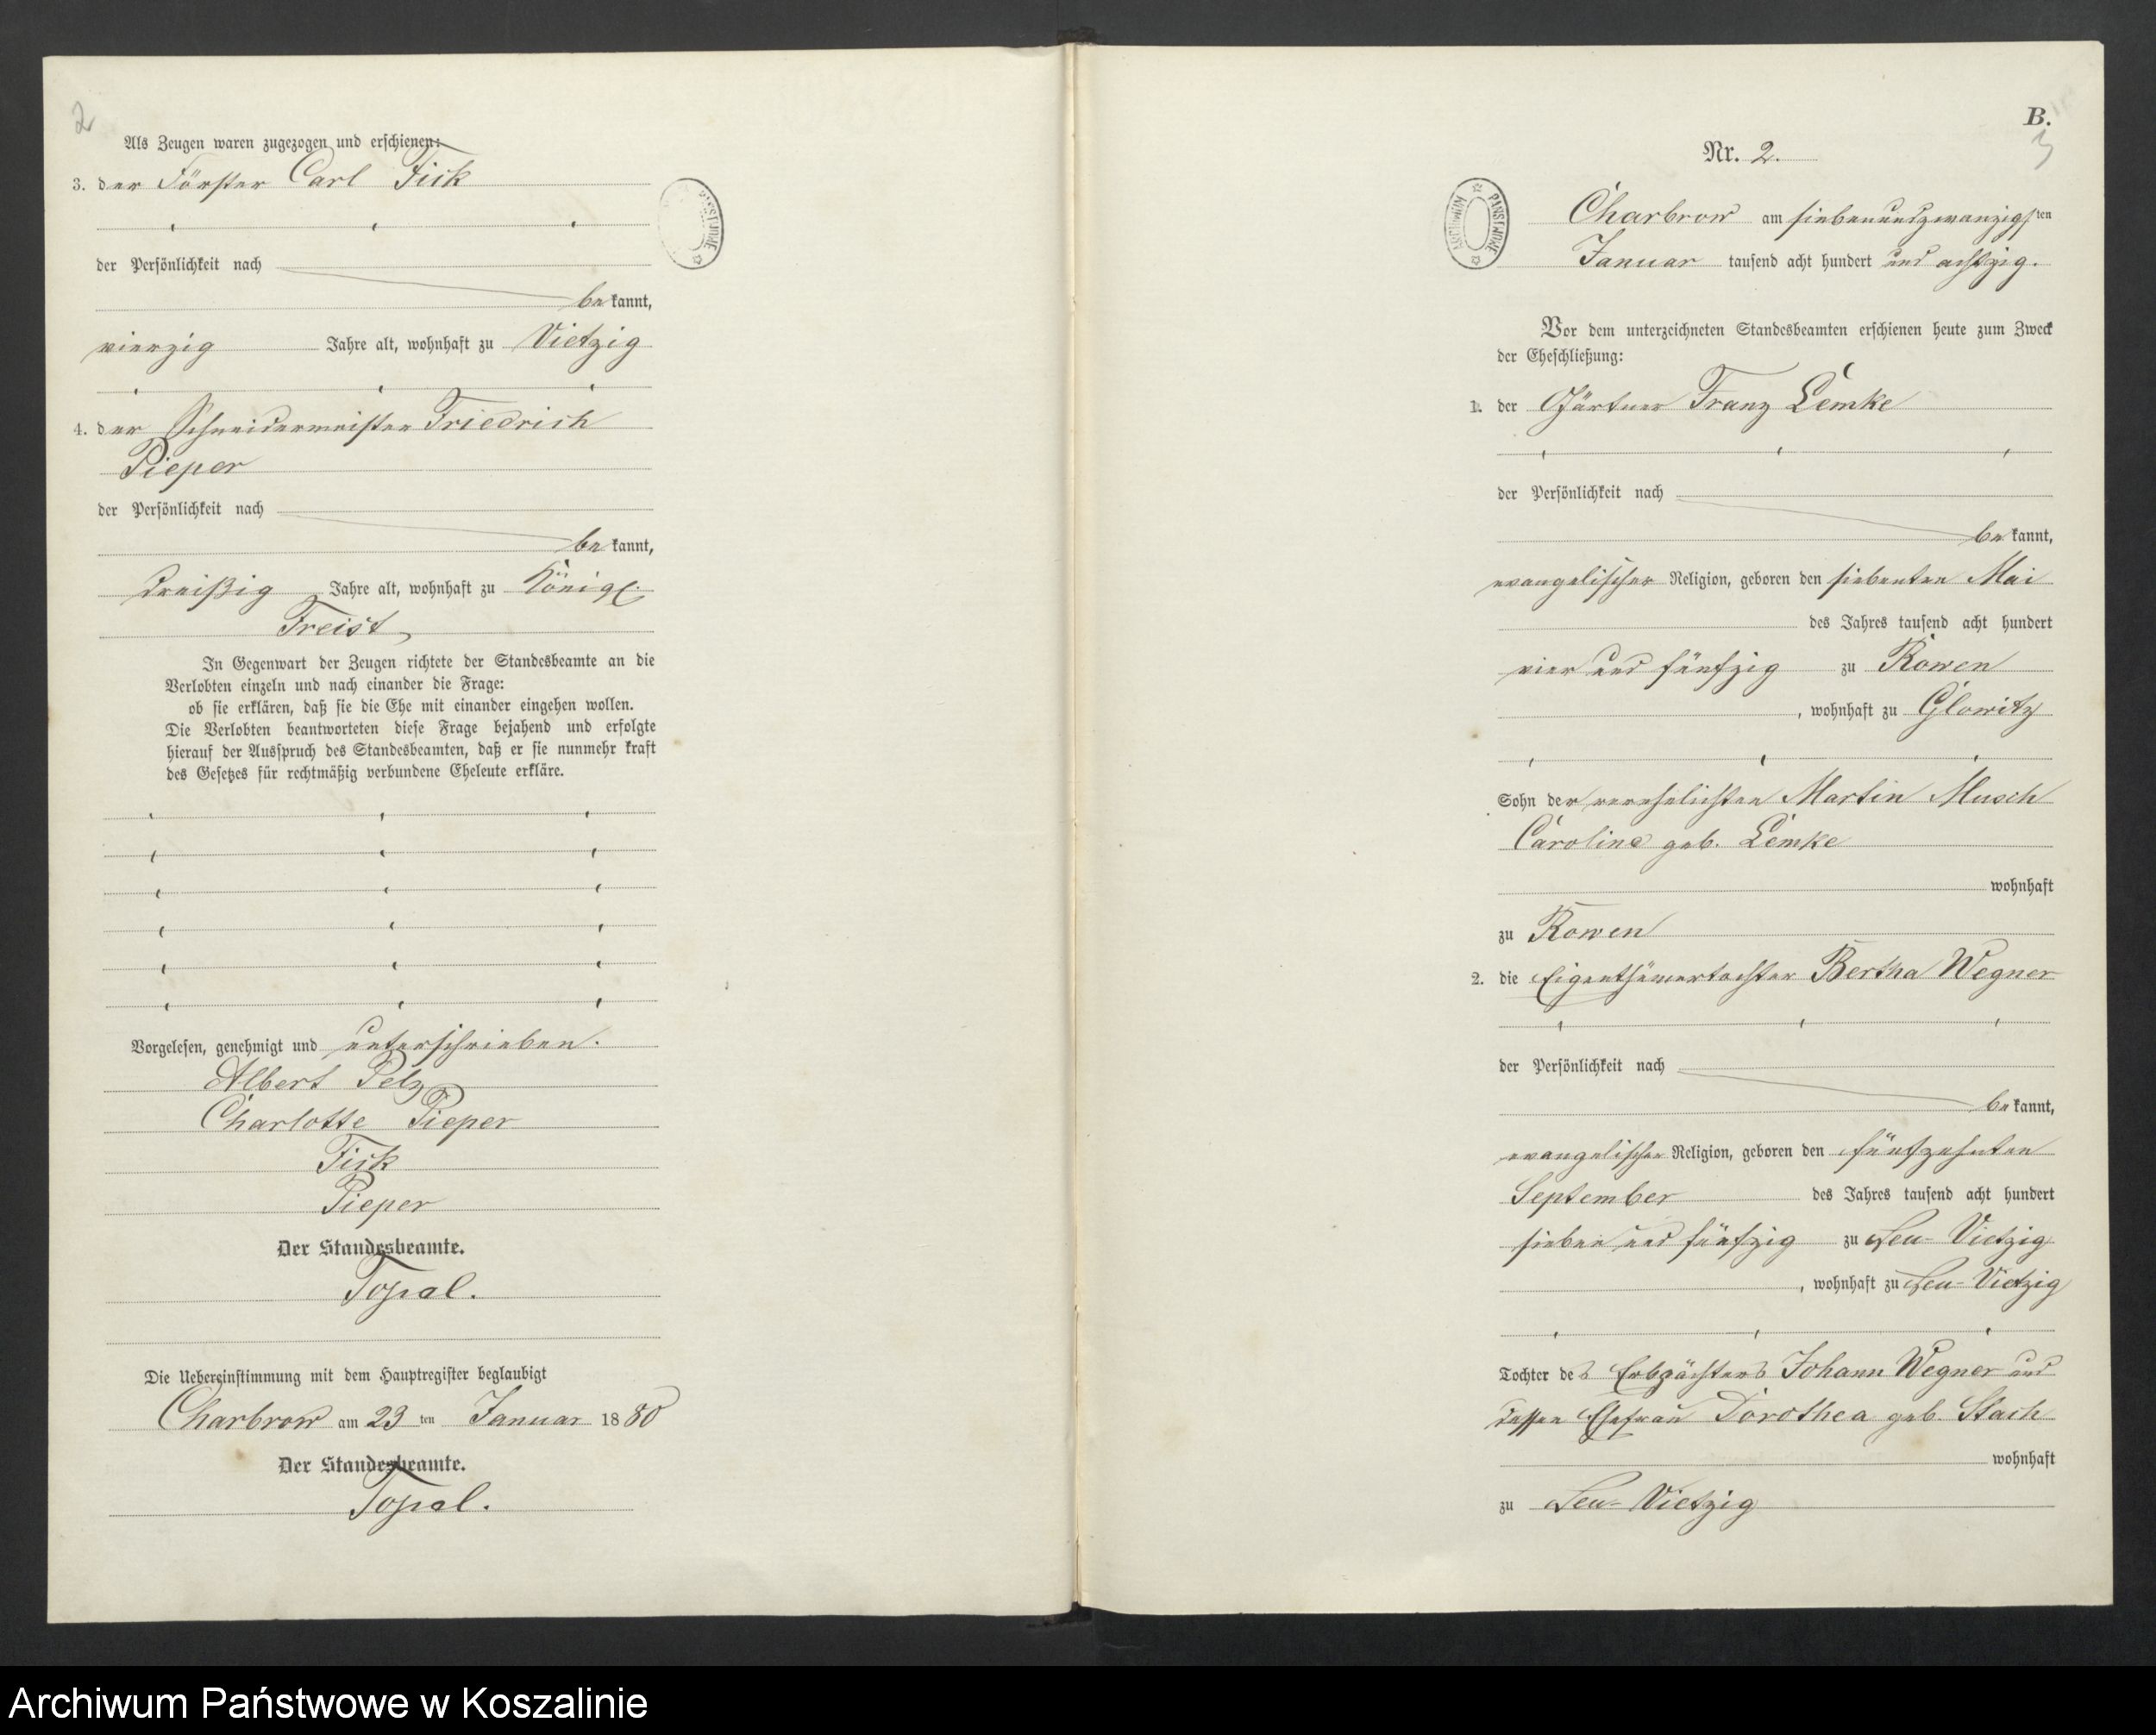 2
Als Zeugen waren zugezogen und erschienen:
3. der Förster Carl Fick
der Persönlichkeit nach
be kannt,
vierzig Jahre alt, wohnhaft zu Vietzig
4. der Schneidermeister Friedrich
Pieper
der Persönlichkeit nach
be kannt,
dreißig Jahre alt, wohnhaft zu Königl.
Freist,
In Gegenwart der Zeugen richtete der Standesbeamte an die
Verlobten einzeln und nach einander die Frage:
ob sie erklären, daß sie die Ehe mit einander eingehen wollen.
Die Verlobten beantworteten diese Frage bejahend und erfolgte
hierauf der Ausspruch des Standesbeamten, daß er sie nunmehr kraft
des Gesetzes für rechtmäßig verbundene Eheleute erkläre.
Vorgelesen, genehmigt und unterschrieben.
Albert Pelz
Charlotte Pieper
Fick
Pieper
Der Standesbeamte.
Topal.
Die Uebereinstimmung mit dem Hauptregister beglaubigt
Charbrow am 23 ten Januar 18 80
Der Standesbeamte.
Topal.
B.
3
Nr. 2.
ARCHIWUM PAŃSTWOWE
Charbrow am siebenundzwanzigsten
Januar tausend acht hundert und achtzig.
Vor dem unterzeichneten Standesbeamten erschienen heute zum Zweck
der Eheschließung:
1. der Gärtner Franz Lemke
der Persönlichkeit nach
be kannt,
evangelischer Religion, geboren den siebenten Mai
des Jahres tausend acht hundert
vier und fünfzig zu Rowen
, wohnhaft zu Glowitz
Sohn der verehelichten Martin Musch
Caroline geb. Lemke
wohnhaft
zu Rowen
2. die Eigenthümertochter Bertha Wegner
der Persönlichkeit nach
be kannt,
evangelischer Religion, geboren den fünfzehnten
September des Jahres tausend acht hundert
sieben und fünfzig zu Neu-Vietzig
, wohnhaft zu Neu-Vietzig
Tochter des Erbpächters Johann Wegner und
dessen Ehefrau Dorothea geb. Stach
wohnhaft
zu Neu-Vietzig
Archiwum Państwowe w Koszalinie